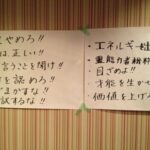 やめろ!!
は正しい!!
言うことを聞け!!
を認めろ!!
まかすな!!
試するな!!
・エネルギー
・重能力者
・目ざめよ!!
・才能を生かせ
・価値を上げ